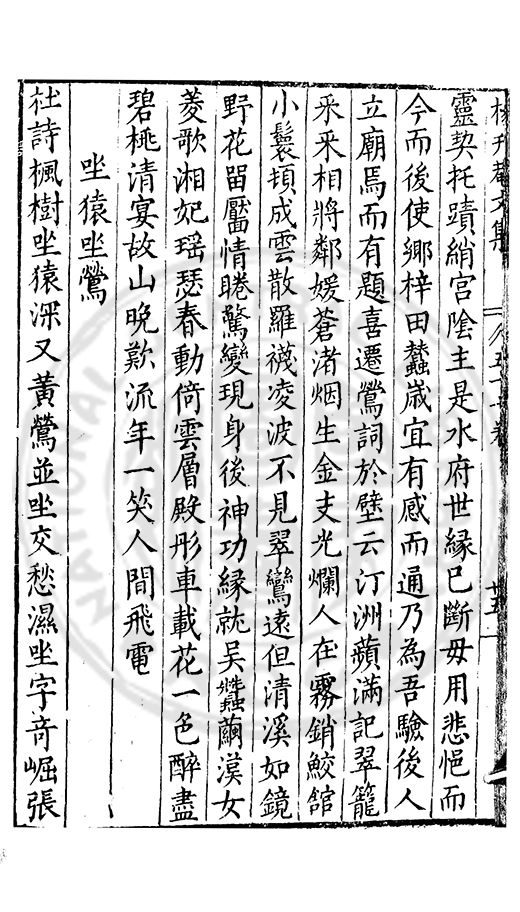 楊升菴文集
靈契托蹟綃宮陰主是水府世緣已斷毋用悲悒而
今而後使鄉梓田蠶歲宜有感而通乃為吾驗後人
立廟焉而有題喜遷鶯詞於壁云汀洲蘋滿記翠籠
采采相將鄰媛蒼渚烟生金支光爛人在霧銷鮫舘
小鬟頓成雲散羅襪凌波不見翠鸞遠但清溪如鏡
野花留靨情睠驚變現身後神功緣就吳蠶繭漢女
菱歌湘妃瑶瑟春動倚雲層殿彤車載花一色醉盡
碧桃清宴故山晚歎流年一笑人間飛電
坐猿坐鶯
杜詩楓樹坐猿深又黃鶯並坐交愁濕坐字奇崛張